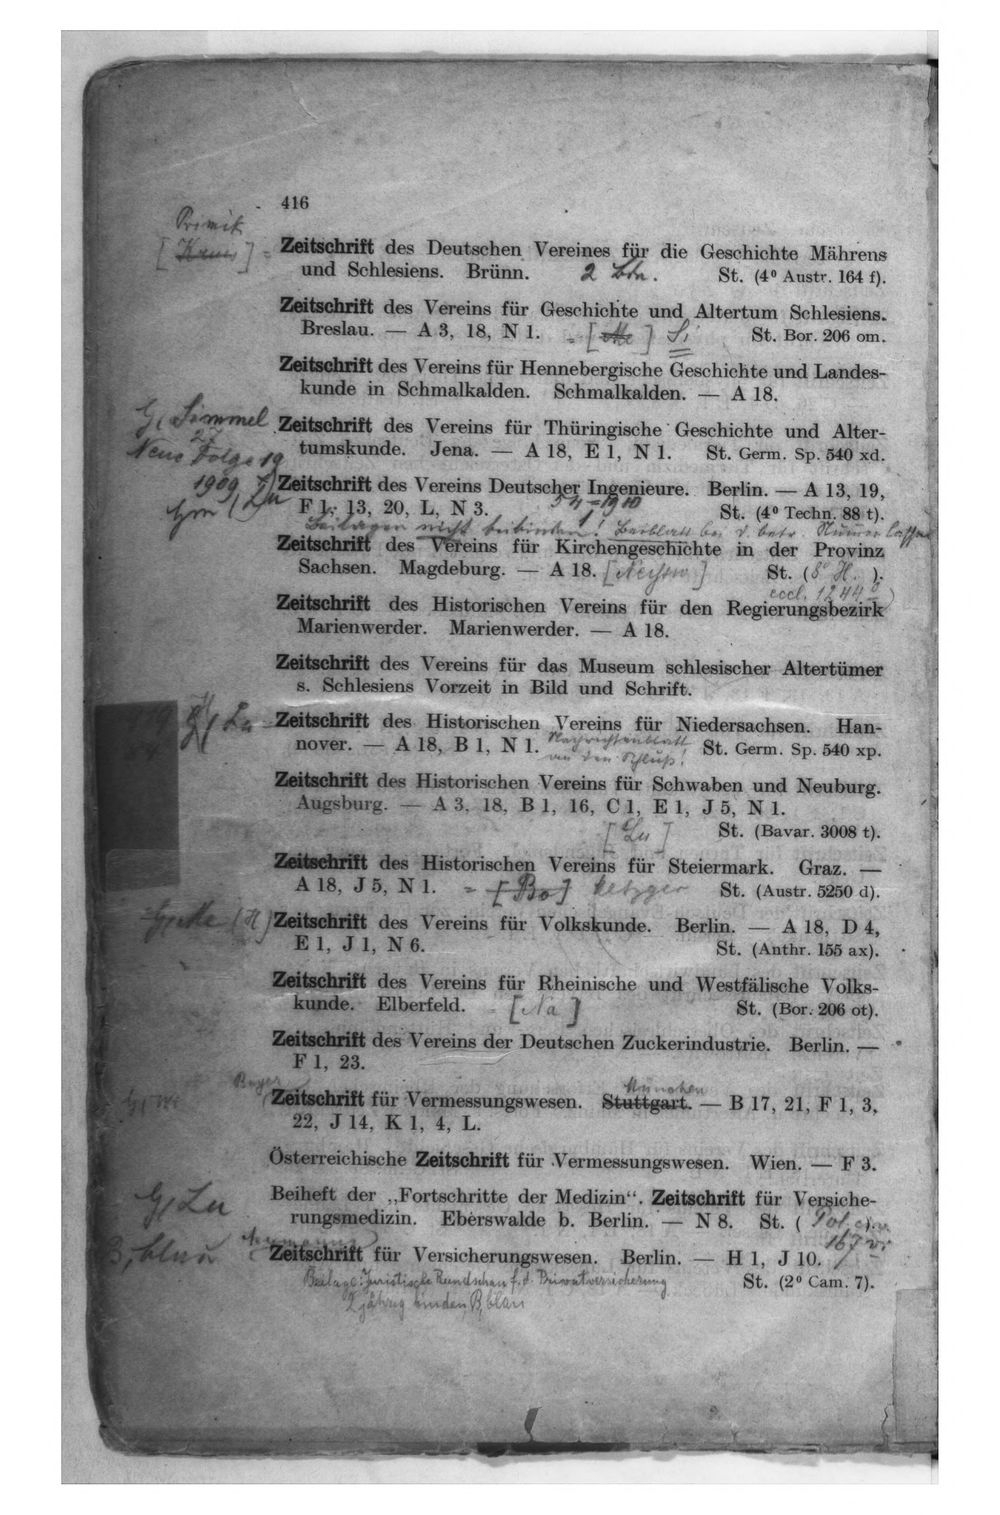 416
Zeitschrift des Deutschen Vereines für die Geschichte Mährens
und Schlesiens. Brünn. 2 Bde. St. (4⁰ Austr. 164 f).
Zeitschrift des Vereins für Geschichte und Altertum Schlesiens.
Breslau. — A 3, 18, N 1. St. Bor. 206 om.
Zeitschrift des Vereins für Hennebergische Geschichte und Landes-
kunde in Schmalkalden. Schmalkalden. — A 18.
Simmel
Zeitschrift des Vereins für Thüringische Geschichte und Alter-
Neue Folge 19
tumskunde. Jena. — A 18, E 1, N 1. St. Germ. Sp. 540 xd.
1909
Zeitschrift des Vereins Deutscher Ingenieure. Berlin. — A 13, 19,
54 = 1910
F 1, 13, 20, L, N 3. St. (4⁰ Techn. 88 t).
Beilagen nicht beibinden! Beiblatt bei d. betr. Nummer lassen
Zeitschrift des Vereins für Kirchengeschichte in der Provinz
Sachsen. Magdeburg. — A 18. St. (8⁰ H. ).
eccl. 1244
Zeitschrift des Historischen Vereins für den Regierungsbezirk
Marienwerder. Marienwerder. — A 18.
Zeitschrift des Vereins für das Museum schlesischer Altertümer
s. Schlesiens Vorzeit in Bild und Schrift.
Lu
Zeitschrift des Historischen Vereins für Niedersachsen. Han-
nover. — A 18, B 1, N 1. Nachrichtenblatt St. Germ. Sp. 540 xp.
an den Schluß!
Zeitschrift des Historischen Vereins für Schwaben und Neuburg.
Augsburg. — A 3, 18, B 1, 16, C 1, E 1, J 5, N 1.
[Lu] St. (Bavar. 3008 t).
Zeitschrift des Historischen Vereins für Steiermark. Graz. —
A 18, J 5, N 1. = [Bo] Metzger St. (Austr. 5250 d).
Zeitschrift des Vereins für Volkskunde. Berlin. — A 18, D 4,
E 1, J 1, N 6. St. (Anthr. 155 ax).
Zeitschrift des Vereins für Rheinische und Westfälische Volks-
kunde. Elberfeld. [Na] St. (Bor. 206 ot).
Zeitschrift des Vereins der Deutschen Zuckerindustrie. Berlin. —
F 1, 23.
Bayer München
Zeitschrift für Vermessungswesen. Stuttgart. — B 17, 21, F 1, 3,
22, J 14, K 1, 4, L.
Österreichische Zeitschrift für Vermessungswesen. Wien. — F 3.
G/Lu
Beiheft der „Fortschritte der Medizin“. Zeitschrift für Versiche-
rungsmedizin. Eberswalde b. Berlin. — N 8. St. (
167
B, blau
Zeitschrift für Versicherungswesen. Berlin. — H 1, J 10.
Beilage: Juristische Rundschau f. d. Privatversicherung St. (2⁰ Cam. 7).
2 jährig binden, B, blau